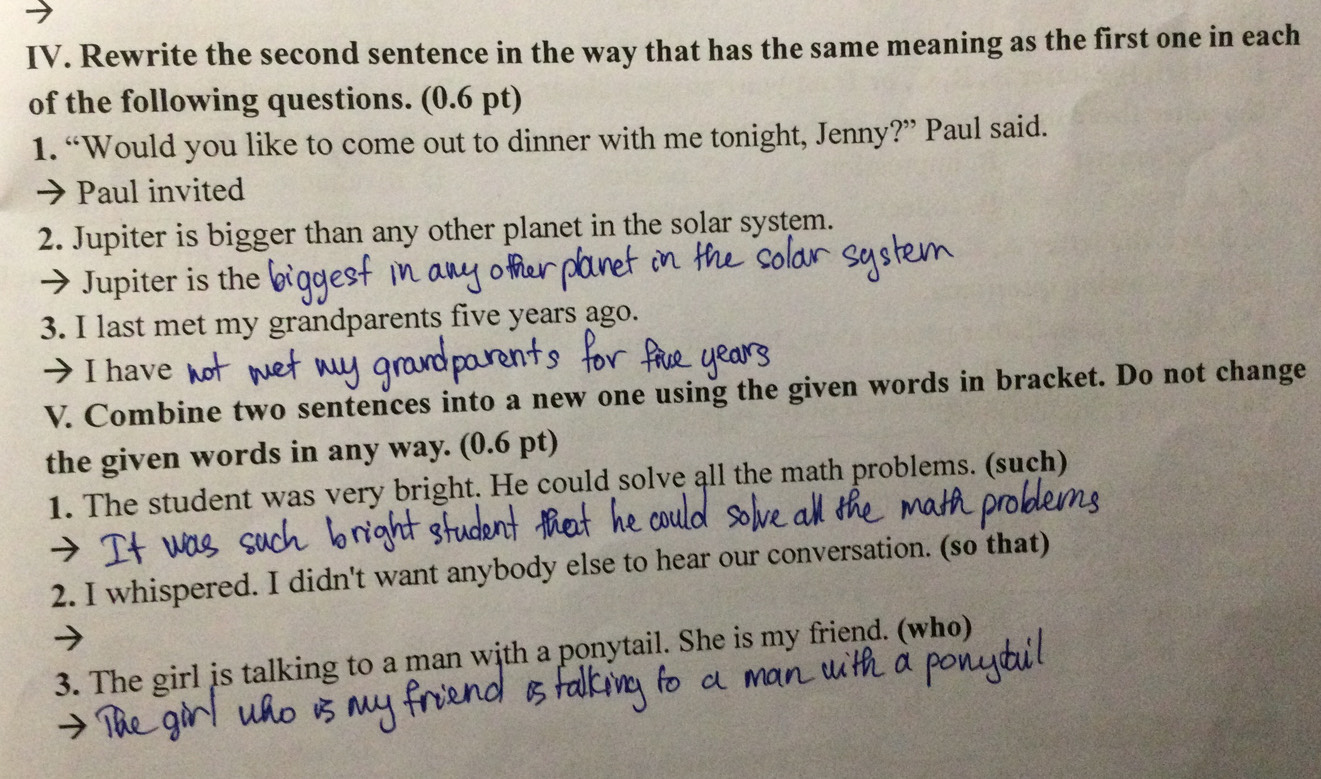 →
IV. Rewrite the second sentence in the way that has the same meaning as the first one in each
of the following questions. (0.6 pt)
1. “Would you like to come out to dinner with me tonight, Jenny?” Paul said.
→ Paul invited
2. Jupiter is bigger than any other planet in the solar system.
→ Jupiter is the biggest in any other planet in the solar system
3. I last met my grandparents five years ago.
→ I have not met my grandparents for five years
V. Combine two sentences into a new one using the given words in bracket. Do not change
the given words in any way. (0.6 pt)
1. The student was very bright. He could solve all the math problems. (such)
→ It was such bright student that he could solve all the math problems
2. I whispered. I didn't want anybody else to hear our conversation. (so that)
→
3. The girl is talking to a man with a ponytail. She is my friend. (who)
→ The girl who is my friend is talking to a man with a ponytail